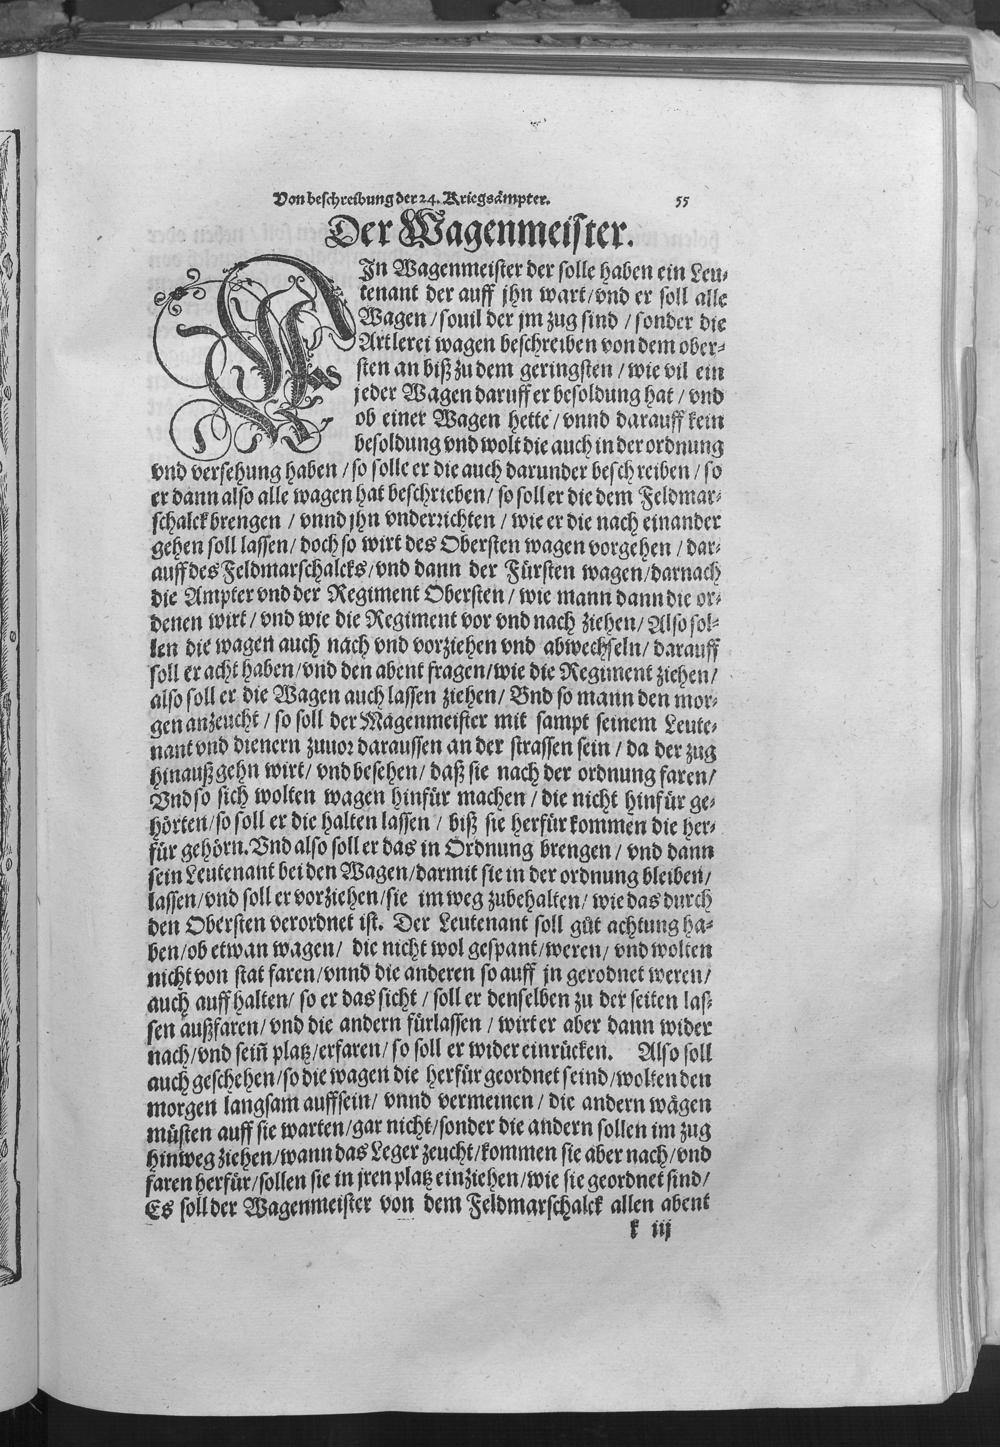 Von beschreibung der 24. Kriegsämpter. 55
Der Wagenmeister.
EIn Wagenmeister der solle haben ein Leu-
tenant der auff jhn wart/vnd er soll alle
Wagen/souil der jm zug sind/sonder die
Artlerei wagen beschreiben von dem ober-
sten an biß zu dem geringsten/wie vil ein
jeder Wagen daruff er besoldung hat/vnd
ob einer Wagen hette/vnnd darauff kein
besoldung vnd wolt die auch in der ordnung
vnd versehung haben/so solle er die auch darunder beschreiben/so
er dann also alle wagen hat beschrieben/so soll er die dem Feldmar-
schalck brengen/vnnd jhn vnderrichten/wie er die nach einander
gehen soll lassen/doch so wirt des Obersten wagen vorgehen/dar-
auff des Feldmarschalcks/vnd dann der Fürsten wagen/darnach
die Ampter vnd der Regiment Obersten/wie mann dann die or-
denen wirt/vnd wie die Regiment vor vnd nach ziehen/Also sol-
len die wagen auch nach vnd vorziehen vnd abwechseln/darauff
soll er acht haben/vnd den abent fragen/wie die Regiment ziehen/
also soll er die Wagen auch lassen ziehen/Vnd so mann den mor-
gen anzeucht/so soll der Wagenmeister mit sampt seinem Leute-
nant vnd dienern zuuor daraussen an der strassen sein/da der zug
hinauß gehn wirt/vnd besehen/daß sie nach der ordnung faren/
Vnd so sich wolten wagen hinfür machen/die nicht hinfür ge-
hörten/so soll er die halten lassen/biß sie herfür kommen die her-
für gehörn. Vnd also soll er das in Ordnung brengen/vnd dann
sein Leutenant bei den Wagen/darmit sie in der ordnung bleiben/
lassen/vnd soll er vorziehen/sie im weg zubehalten/wie das durch
den Obersten verordnet ist. Der Leutenant soll gůt achtung ha-
ben/ob etwan wagen/die nicht wol gespant/weren/vnd wolten
nicht von stat faren/vnnd die anderen so auff jn gerodnet weren/
auch auff halten/so er das sicht/soll er denselben zu der seiten las-
sen außfaren/vnd die andern fürlassen/wirt er aber dann wider
nach/vnd sein̄ platz/erfaren/so soll er wider einrücken. Also soll
auch geschehen/so die wagen die herfür geordnet seind/wolten den
morgen langsam auffsein/vnnd vermeinen/die andern wägen
müsten auff sie warten/gar nicht/sonder die andern sollen im zug
hinweg ziehen/wann das Leger zeucht/kommen sie aber nach/vnd
faren herfür/sollen sie in jren platz einziehen/wie sie geordnet sind/
Es soll der Wagenmeister von dem Feldmarschalck allen abent
k iij